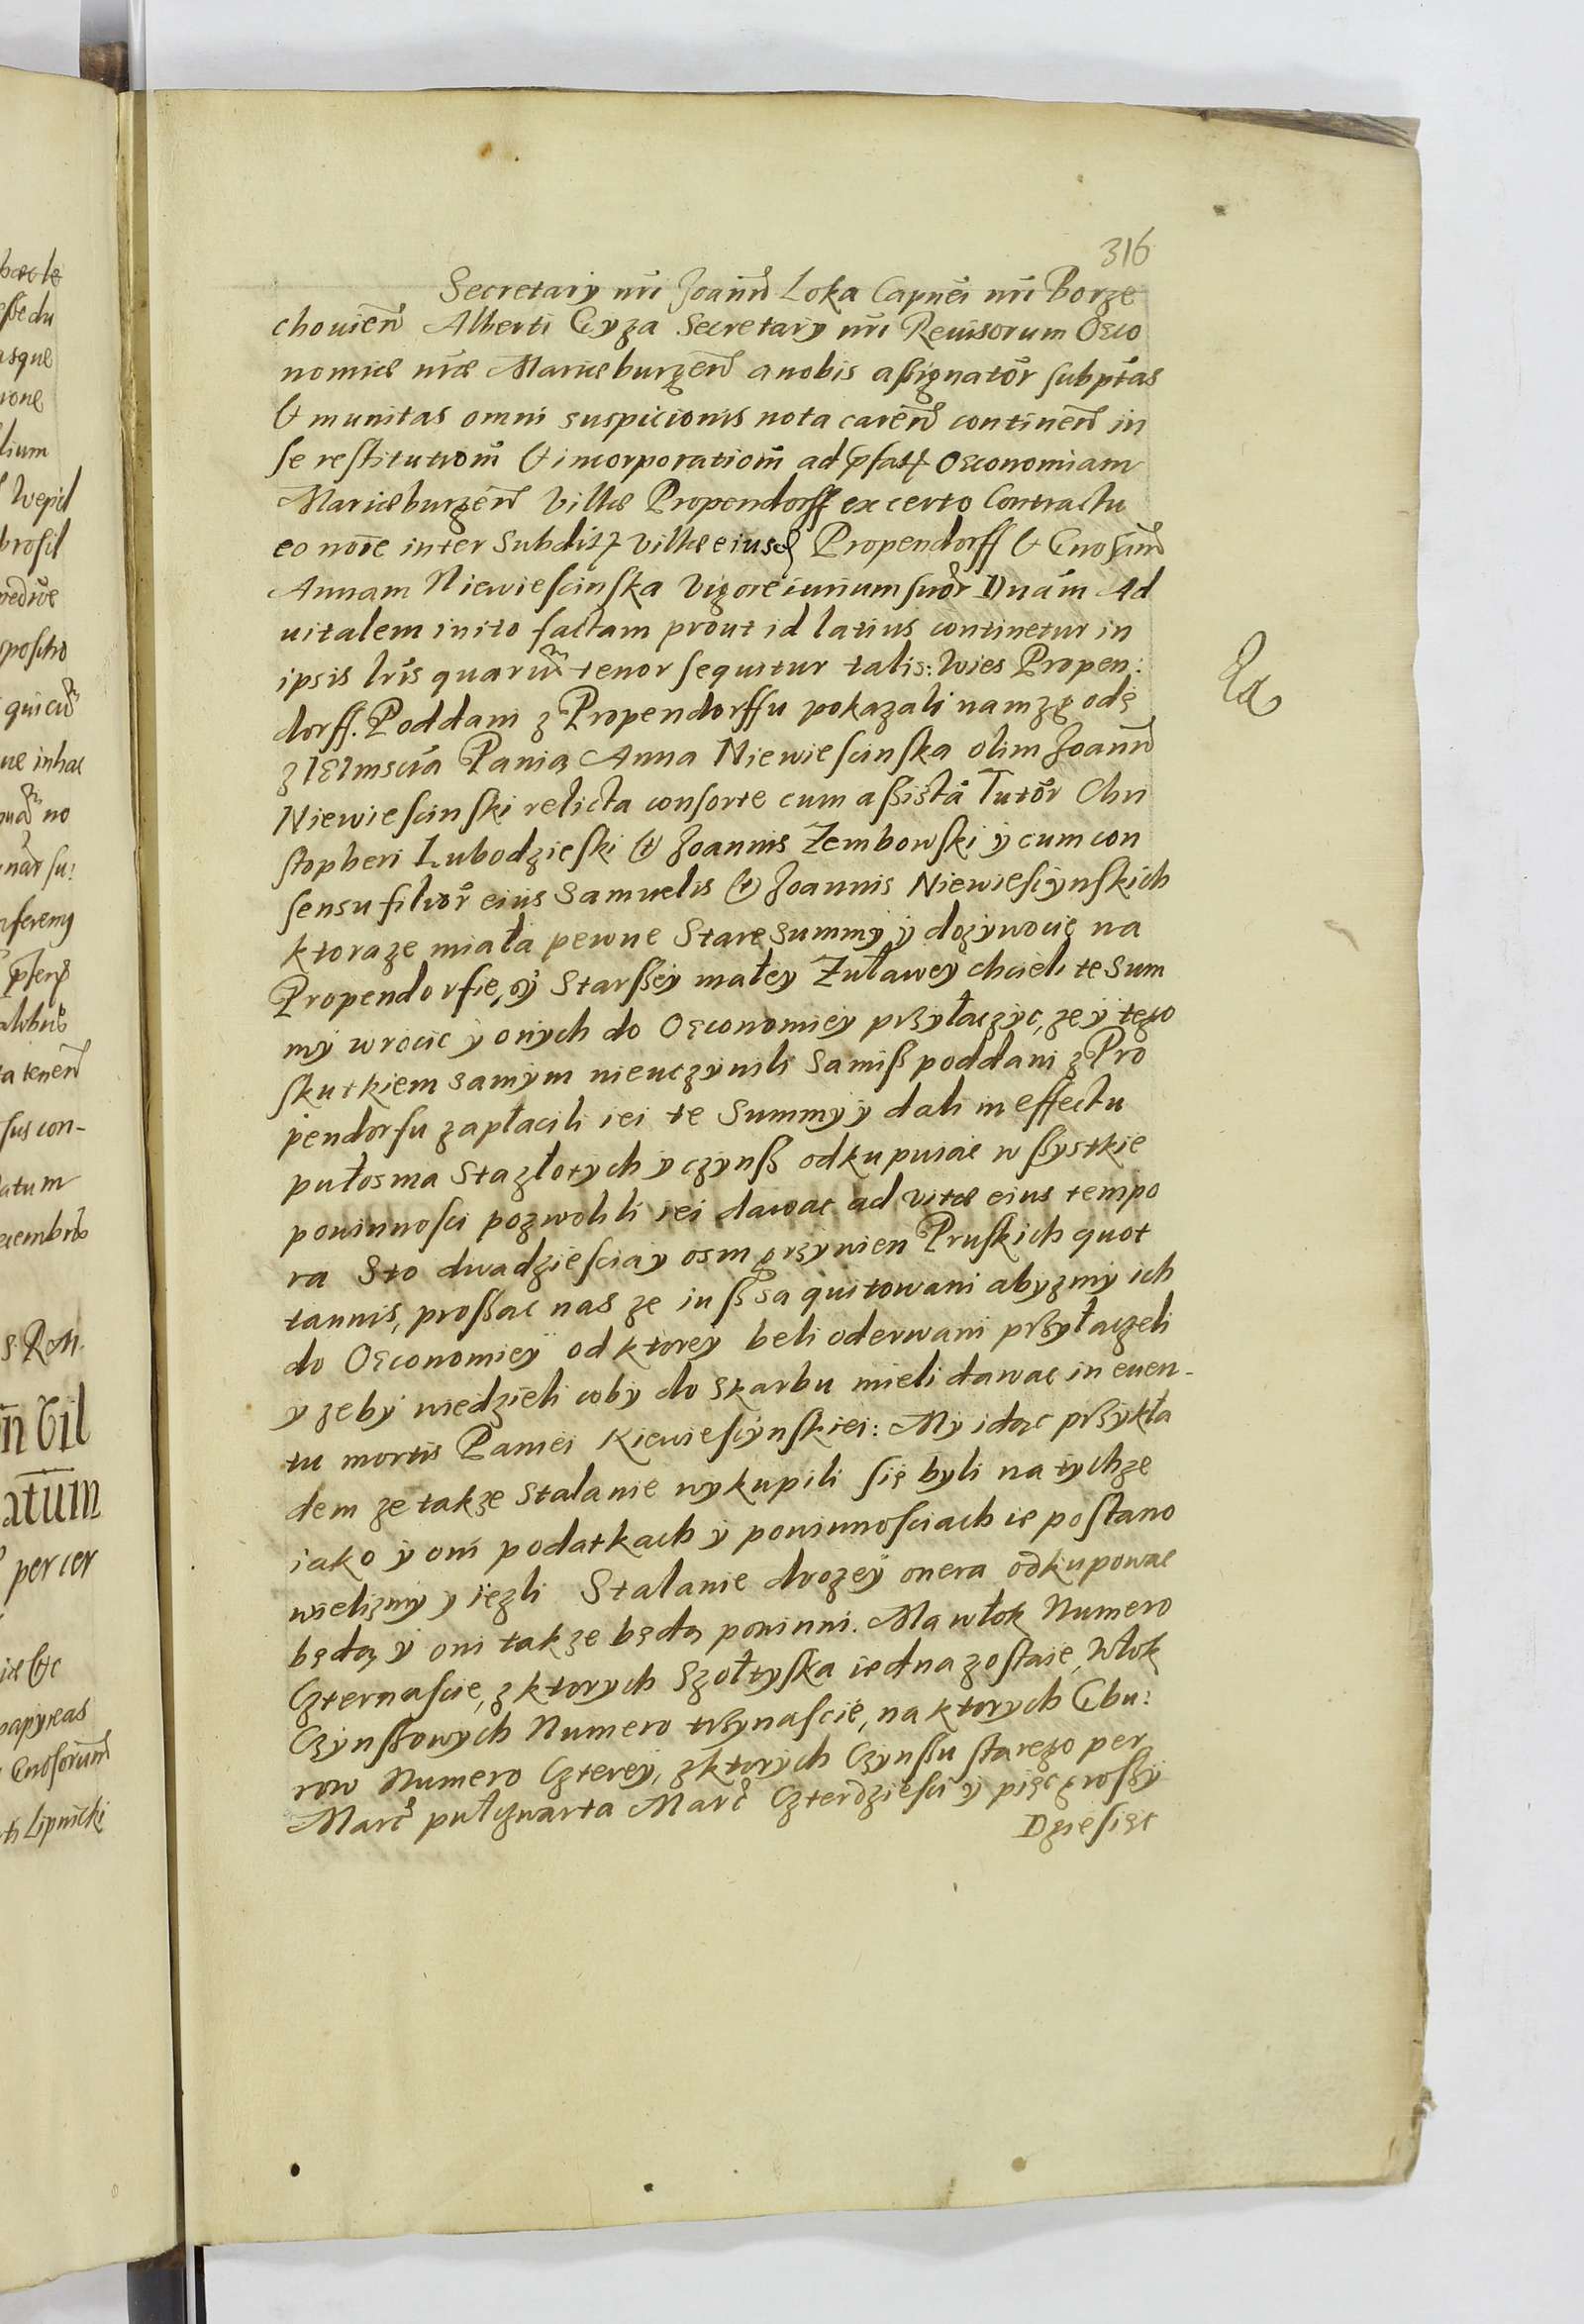 316
Secretarÿ nr̃i Joann̄ Loka Capnẽi nr̃i Borze
chouien̄ Alberti Gyza Secretarÿ nr̃i Reuisorum Oeco
nomiæ nr̃æ Marieburgen̄ a nobis aßignator̃ subpt̃as
& munitas omni suspicionis nota caren̄ continen̄ in
se restitutiom̃ & incorporatiom̃ ad Oeconomiam
Marieburgen̄ Villæ Propendorff ex certo Contractu
eo noĩe inter Villæ eiusd Propendorff & Gnosam̃
Annam Niewiescinska Vigore iurium suor̃ Dnãm Ad
uitalem inito factam prout id latius continetur in
ipsis lrĩs quarum̃ tenor sequitur talis: Wies Propen:
dorff. Poddani z Propendorffu pokazali nam ze odę
Pania Anna Niewiescinska olim Joann̄
Niewiescinski relicta consorte cum aßista Tutor̃ Chri
stopheri Lubodzieski & Joannis Zembowski ÿ cum con
sensu filior̃ eius Samuelis & Joannis Niewiesciÿnskich
ktora ze miała pewne Stare Summÿ ÿ dozÿwocie na
Propendorfie, ÿ Starßeÿ małeÿ Zuławeÿ chcieli te Sum
mÿ wrocic ÿ onÿch do Oeconomieÿ przÿłaczÿc, ze ÿ tego
skutkiem samÿm nieuczÿnili Samiß poddani z Pro
pendorfu zapłacili iei te Summÿ ÿ dali in effectu
pułosma Sta złotÿch ÿ czÿnß odkupuiac w ßÿstkie
pouinnosci pozwolili iei dawac ad vitæ eius tempo
ra Sto dwadziescia ÿ osm grzÿwien Pruskich quot
tannis, proßac nas ze iuß sa quitowani abÿzmÿ ich
do Oeconomieÿ od ktoreÿ beli oderwani przÿłaczeli
ÿ zebÿ wiedzieli cobÿ do skarbu mieli dawac in euen-
tu mortis Paniei Niewiesciÿnskiei: Mÿ idąc przÿkła
dem ze takze Stalanie wÿkupili się bÿli na tÿchze
iako ÿ oni podatkach ÿ pouinnosciach ie postano
wielizmÿ ÿ iezli Stalanie drozeÿ onera odkupowac
będą ÿ oni takze będą pouinni. Ma włok Numero
Czternascie, z ktorÿch Szołtÿska iedna zostaie, Włok
Czÿnßowÿch Numero trzÿnascie, na ktorÿch Gbu:
row Numero Cztereÿ, z ktorÿch Czÿnßu starego per
Marc̃ pułczwarta Marc̃ Czterdziesci ÿ pięc groszÿ
Dziesięc